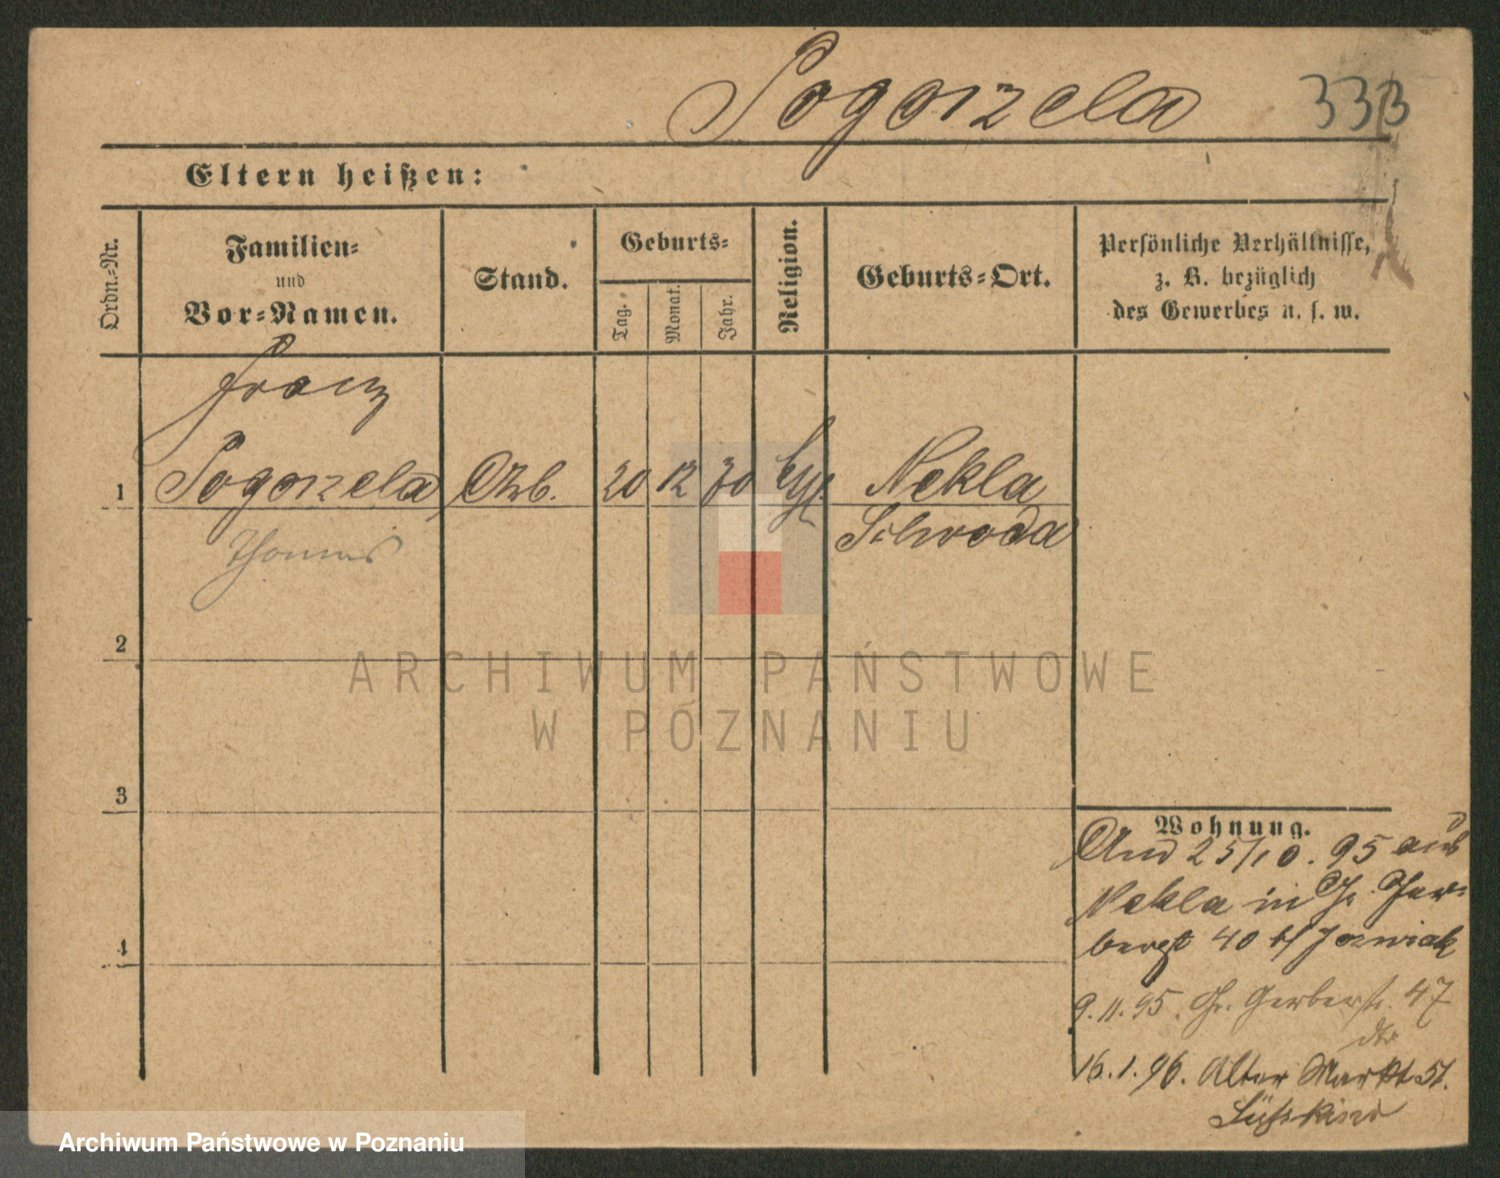 Pogorzela 333
Eltern heißen:
Ordn.-Nr.
Familien-
und
Vor-Namen.
Stand.
Geburts-
Tag.
Monat.
Jahr.
Religion.
Geburts-Ort.
Persönliche Verhältnisse,
z. B. bezüglich
des Gewerbes u. s. w.
Franz
1 Pogorzela Arb. 20 12 70 Nekla
Thomas Schroda
2
3
4
Wohnung.
25/10. 95 aus
Nekla in Gr. Ger-
berst 40 b/ Jozwiak
9.11.95. Gr. Gerberstr. 47
16.1.96. Alter Markt 51.
Süßkind
ARCHIWUM PAŃSTWOWE
W POZNANIU
Archiwum Państwowe w Poznaniu